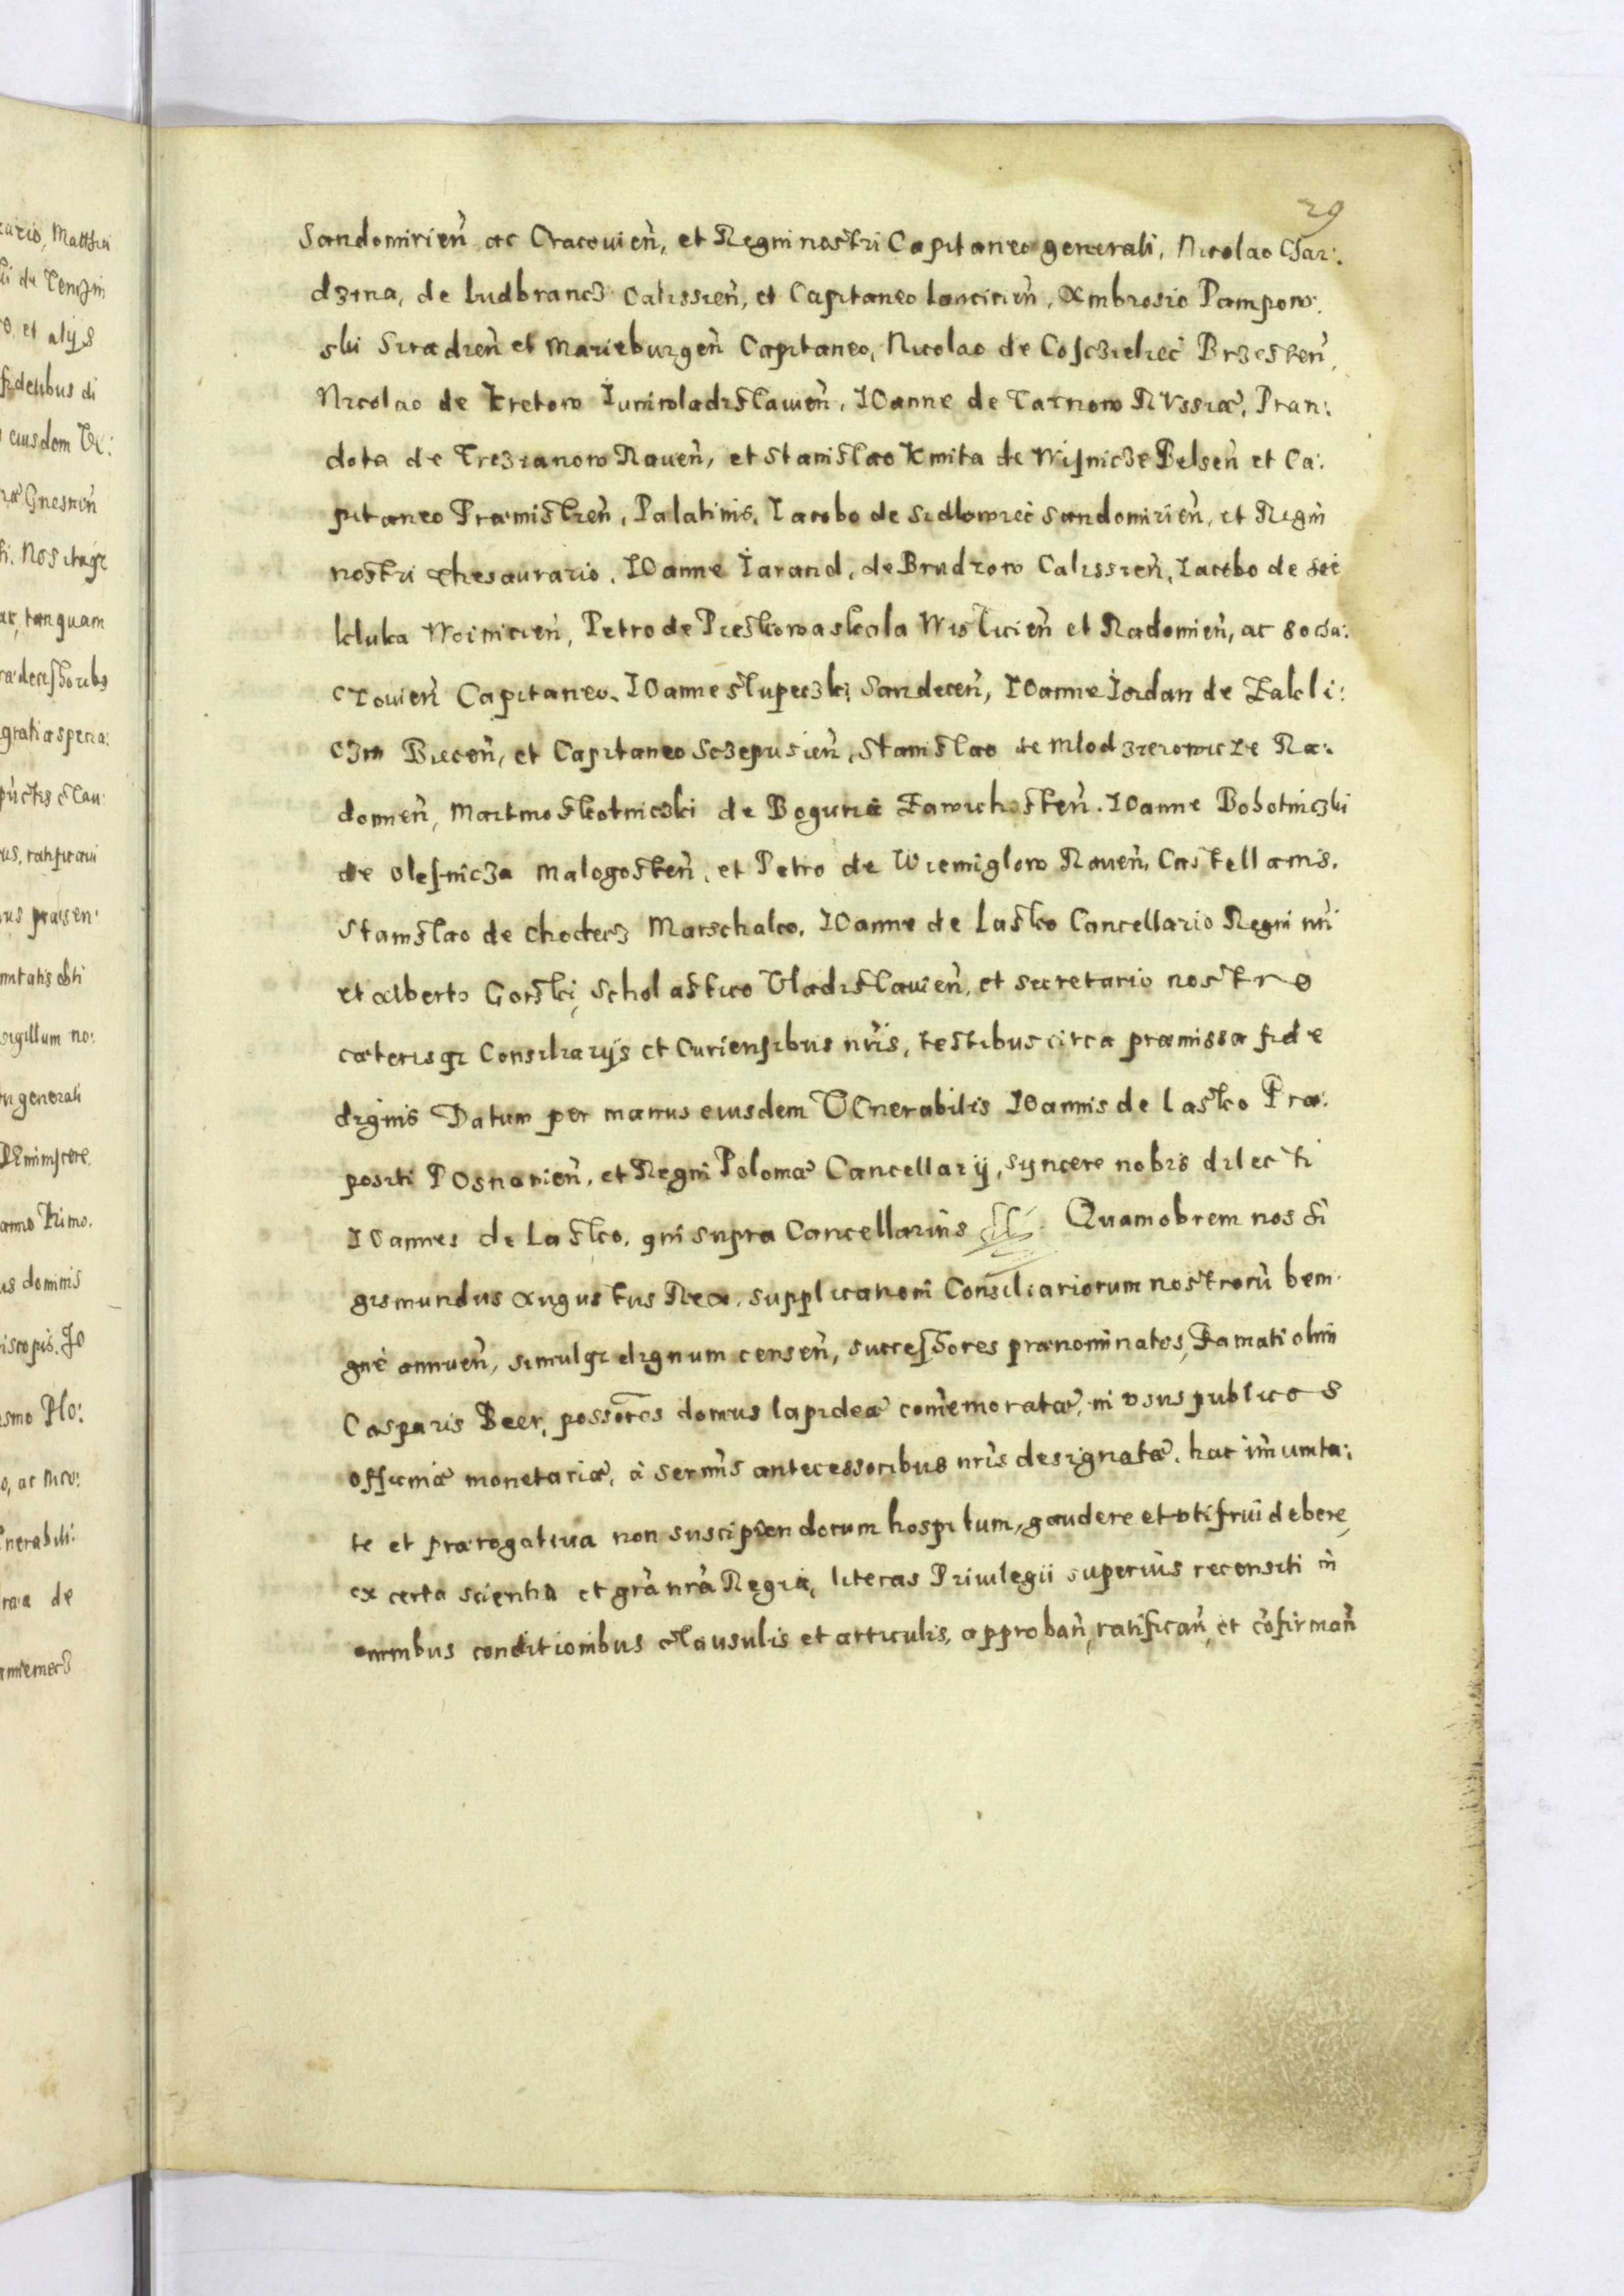 29
Sandomirień ac Cracouień, et Regni nostri Capitaneo generali, Nicolao Ghar:
dzina, de Ludbrancz Calissień, et Capitaneo Lancicień, Ambrosio Pampow:
ski Siradień et Marieburgeń Capitaneo, Nicolao de Cosczieliec Brzesteń,
Nicolao de Kretow Iuniwladislauień, IOanne de Tarnow RVssiæ, Pran:
dota de Trczianow Raueń, et Stanislao Kmita de Wisnicze Belseń et Ca:
pitaneo Præmislień, Palatinis, Iacobo de Sidlowiec Sandomirień, et Regni
nostri Thesaurario, IOanne Iarand, de Brudzow Calissień, Iacobo de
kluka Woinicień, Petro de Pieskowaskala Wislicień et Radomień, ac Socha:
czouień Capitaneo, IOanne Slupeczki Sandeceń, IOanne Iordan de Zakli:
czin Bieceń, et Capitaneo Sczepusień, Stanislao de Mlodzieiowicze Ra:
domień, Martino Skotniczki de Boguria Zawichosteń. IOanne Bohotniczki
de Olesnicza Malogosteń, et Petro de Wiemiglow Raueń, Castellanis.
Stanislao de Chodecz Marschalco, IOanne de Lasko Cancellario Regni nri
et Alberto Gorski, Scholastico Vladislauień, et Secretario nostro
cæterisq; Consiliarijs et Curiensibus nris, testibus circa præmissa fide
dignis Datum per manus eiusdem VEnerabilis IOannis de Lasko Præ:
positi POsnanień, et Regni Poloniæ Cancellarij, syncere nobis dilecti
IOannes de Lasko, qui supra Cancellarius sst. Quamobrem nos Si
gismundus Augustus Rex, supplicationi Consiliariorum nostrorū beni
gnè annueń, simulq; dignum censeń, successores prænominatos, Famati olim
Casparis Beer, possores domus lapideæ comemoratæ, in vsus publicos
officinæ monetariæ, à sermis antecessoribus nris designatæ, hac imunita:
te et prærogatiua non suscipiendorum hospitum, gaudere et vtifrui debere,
ex certa scientia et gra nra Regia, literas Priuilegii superius recensiti in
omnibus conditionibus clausulis et articulis, approbań, ratificań, et cofirmań